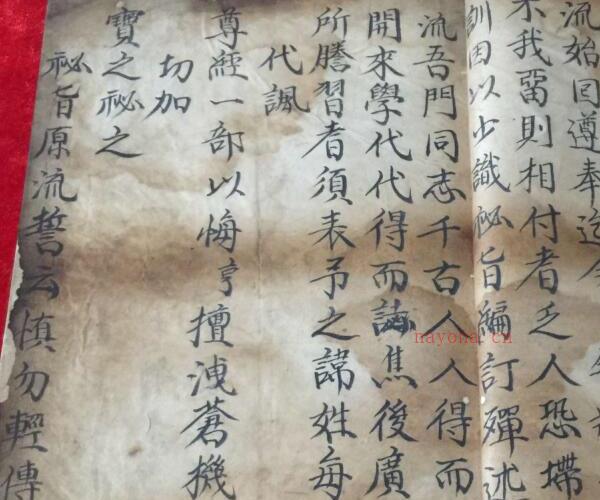 流始回遵奉迄今
不我留則相付者乏人恐墆
訓因以少識祕旨編訂殫述
流吾門同志千古人人得而
開來學代代得而誦焦後廣
所謄習者須表予之諱姓每
代諷
尊經一部以悔亨擅洩蒼機
切加
寶之祕之
祕旨原流誓云慎勿輕傳
nayona.cn